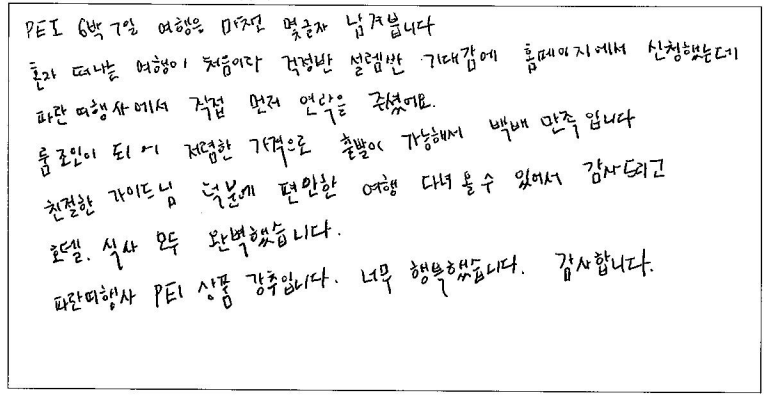 PEI 6박 7일 여행을 마치고 몇글자 남겨봅니다
혼자 떠나는 여행이 처음이라 걱정반 설렘반 기대감에 홈페이지에서 신청했는데
파란여행사에서 직접 먼저 연락을 주셨어요.
룸조인이 되어 저렴한 가격으로 출발이 가능해서 백배 만족입니다
친절한 가이드님 덕분에 편안한 여행 다녀올수 있어서 감사드리고
호텔, 식사 모두 완벽했습니다.
파란여행사 PEI 상품 강추입니다. 너무 행복했습니다. 감사합니다.